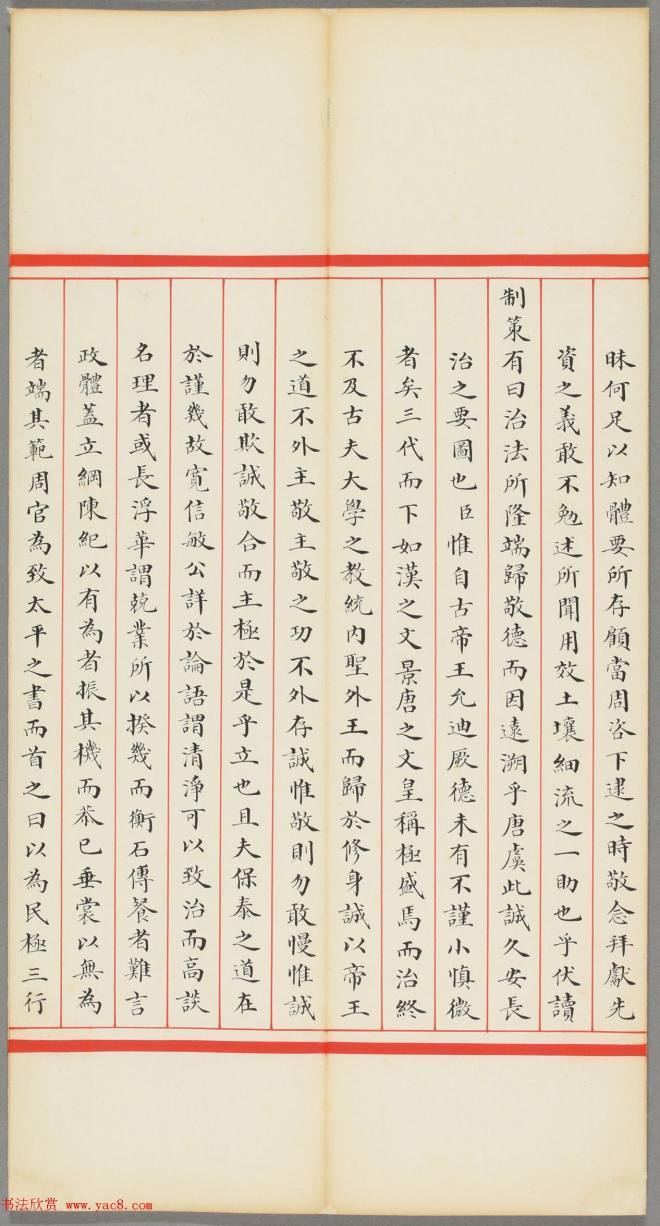 昧何足以知體要所存顧當周咨下逮之時敬念拜獻先
資之義敢不勉述所聞用效土壤細流之一助也乎伏讀
制策有曰治法所隆端歸敬德而因遠溯乎唐虞此誠久安長
治之要圖也臣惟自古帝王允迪厥德未有不謹小慎微
者矣三代而下如漢之文景唐之文皇稱極盛焉而治終
不及古夫大學之教統內聖外王而歸於修身誠以帝王
之道不外主敬主敬之功不外存誠惟敬則勿敢慢惟誠
則勿敢欺誠敬合而主極於是乎立也且夫保泰之道在
於謹幾故寬信敏公詳於論語謂清淨可以致治而高談
名理者或長浮華謂兢業所以揆幾而衡石傳餐者難言
政體蓋立綱陳紀以有為者振其機而恭己垂裳以無為
者端其範周官為致太平之書而首之曰以為民極三行
书法欣赏 www.yac8.com